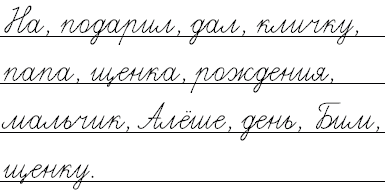 На, подарил, дал, кличку,
папа, щенка, рождения,
мальчик, Алёше, день, Бим,
щенку.